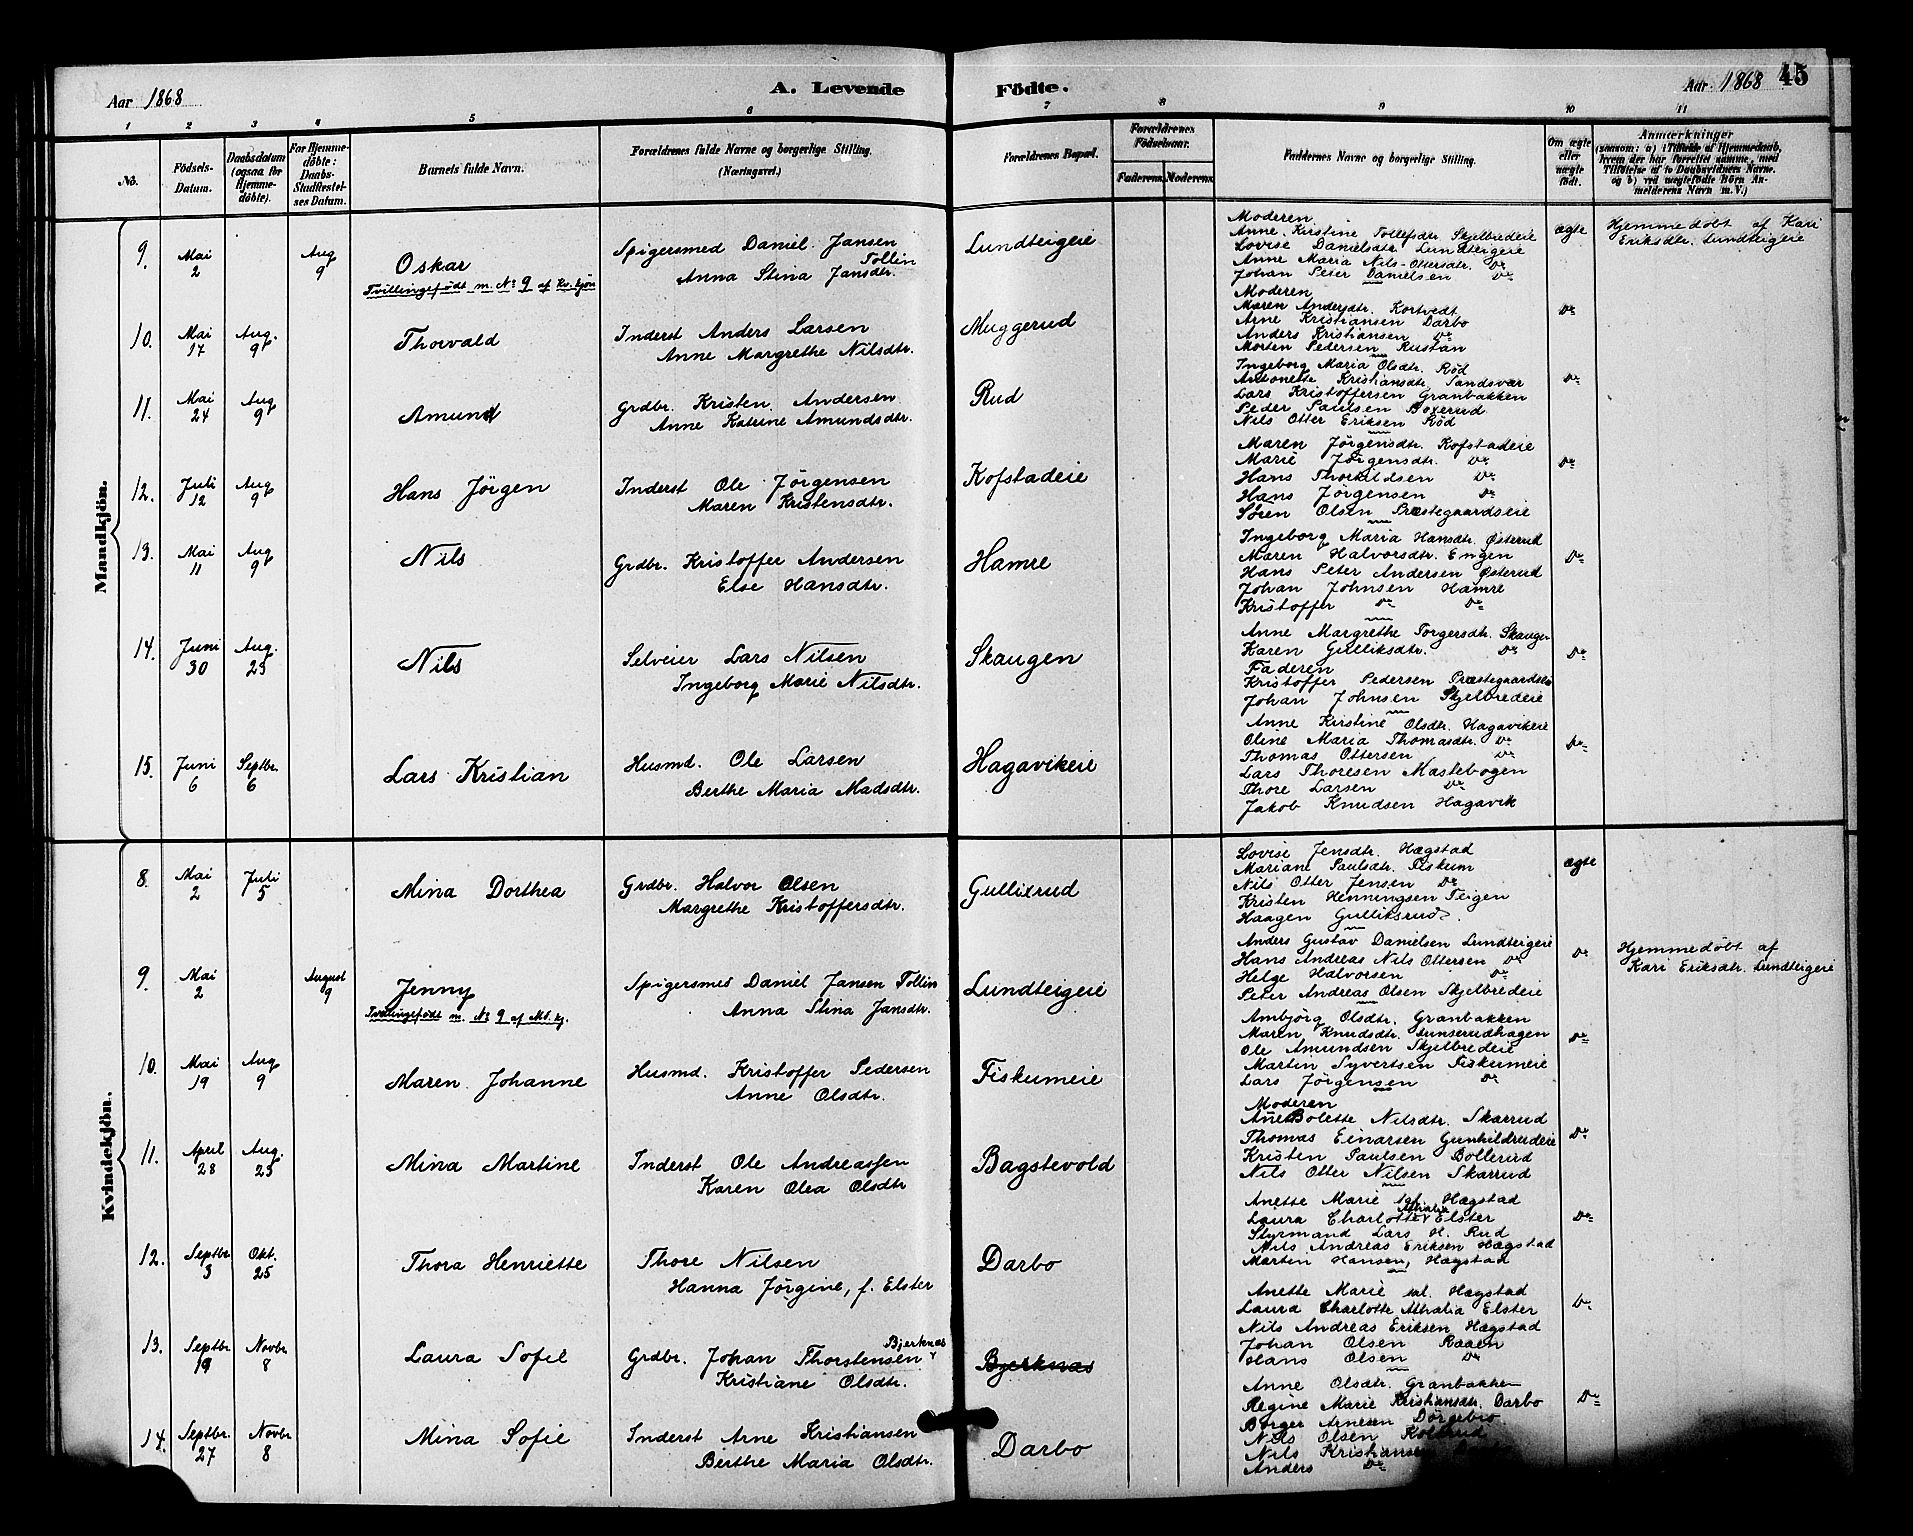 Aar 1868
A. Levende
Födte.
Aar 1868 45
1 2 3 4 5 6 7 8 9 10 11
No.
Födsels-
Datum.
Daabsdatum
(ogsaa for
Hjemme-
döbte).
For Hjemme-
döbte:
Daabs-
Stadfæstel-
ses Datum.
Barnets fulde Navn.
Forældrenes fulde Navne og borgerlige Stilling.
(Næringsvei.)
Forældrenes Bopæl.
Forældrenes
Födselsaar.
Faderens. Moderens.
Faddernes Navne og borgerlige Stilling.
Om ægte
eller
uægte
födt.
Anmærkninger
(saasom: a) i Tilfælde af Hjemmedaab,
hvem der har forrettet samme, med
Tilföielse af to Daabsvidners Navne.
og b) ved uægtefödte Börn An-
melderens Navn m. V.)
Mandkjön.
9.
Mai
2
Aug
9
Oskar
Tvillingefödt m. No 9 af Kv. kjön
Spigersmed Daniel Jansen
Tollin
Anna Stina Jansdtr.
Lundteigeie
Moderen
Anne Kirstine Tollefsdtr. Skjelbredeie
Lovise Danielsdtr. Lundteigeie
Anne Maria Nils-Ottersdtr. Do
Johan Peter Danielsen Do
ægte
Hjemmedöbt af Kari
Eriksdtr. Lundteigeie
10.
Mai
17
Aug.
9
Thorvald
Inderst Anders Larsen
Anne Margrethe Nilsdtr.
Muggerud
Moderen
Maren Andersdtr. Kortvedt
Arne Kristiansen Darbo
Anders Kristiansen Do
Morten Pedersen Rustan
Do
11.
Mai
24
Aug
9
Amund
Grdbr. Kristen Andersen
Anne Katrine Amundsdtr.
Rud
Ingeborg Maria Olsdtr. Röd
Antonette Kristiansdtr. Sandsvær
Lars Kristoffersen Granbakken
Peder Paulsen Boxerud
Nils Otter Eriksen Röd
Do
12.
Juli
12
Aug
9
Hans Jörgen
Inderst Ole Jörgensen
Maren Kristensdtr.
Kofstadeie
Maren Jörgensdtr. Kofstadeie
Marie Jörgensdtr. Do
Hans Thorkildsen Do
Hans Jörgensen Do
Søren Olsen Præstegaardseie
Do
13.
Mai
11
Aug
9
Nils
Grdbr. Kristoffer Andersen
Else Hansdtr.
Hamre
Ingeborg Maria Hansdtr. Østerud
Maren Halvorsdtr. Engen
Hans Peter Andersen Østerud
Johan Johnsen Hamre
Kristoffer Do Do
Do
14.
Juni
30
Aug.
23
Nils
Selveier Lars Nilsen
Ingeborg Marie Nilsdtr.
Skaugen
Anne Margrethe Torgersdtr. Skaugen
Karen Gulliksdtr. Do
Faderen
Kristoffer Pedersen Præstegaardseie
Johan Johnsen Skjelbredeie
Do
15.
Juni
6
Septbr.
6
Lars Kristian
Husmd. Ole Larsen
Berthe Maria Madsdtr.
Hagavikeie
Anne Kirstine Olsdtr. Hagavikeie
Oline Maria Thomasdtr. Do
Thomas Ottersen Do
Lars Thoresen Mastebogen
Thore Larsen Do
Jakob Knudsen Hagavik
Do
Kvindekjön.
8.
Mai
2
Juli
5
Mina Dorthea
Grdbr. Halvor Olsen
Margrethe Kristoffersdtr.
Gullixrud
Lovise Jensdtr. Hægstad
Mariane Paulsdtr. Fiskum
Nils Otter Jensen Do
Kristen Henningsen Teigen
Haagen Gulliksrud
ægte
9.
Mai
2
August
9
Jenny
Tvillingefödt m. No 9 af Mk. kj.
Spigersmed Daniel Jansen Tollin
Anna Stina Jansdtr.
Lundteigeie
Anders Gustav Danielsen Lundteigeie
Hans Andreas Nils Ottersen Do
Helge Halvorsen Do
Peter Andreas Olsen Skjelbredeie
Do
Hjemmedöbt af
Kari Eriksdtr. Lundteigeie
10.
Mai
19
Aug
9
Maren Johanne
Husmd. Kristoffer Pedersen
Anne Olsdtr.
Fiskumeie
Ambjörg Olsdtr. Granbakken
Maren Knudsdtr. Lunserudhagen
Ole Amundsen Skjelbredeie
Martin Syvertsen Fiskumeie
Lars Jörgensen Do
Do
11.
April
28
Aug.
23
Mina Martine
Inderst Ole Andreassen
Karen Olea Olsdtr
Bagstevold
Moderen
Anne Bolette Nilsdtr. Skarrud
Thomas Einarsen Gunhildrudeie
Kristen Paulsen Bollerud
Nils Otter Nilsen Skarrud
Do
12.
Septbr
3
Okt.
25
Thora Henriette
Thore Nilsen
Hanna Jörgine, f. Elster
Darbo
Anette Marie Hægstad
Athalia
Laura Charlotte Elster
Styrmand Lars H. Rud
Nils Andreas Eriksen Hægstad
Martin Hansen, Hægstad
Do
13.
Septbr
19
Novbr
8
Laura Sofie
Bjerknæs
Grdbr. Johan Thorstensen
Kristiane Olsdtr.
Bjerknæs
Anette Marie Hægstad
Laura Charlotte Athalia Elster
Nils Andreas Eriksen Hægstad
Johan Olsen Raaen
Hans Olsen Do
Do
14.
Septbr.
27
Novbr
8
Mina Sofie
Inderst Arne Kristiansen
Berthe Maria Olsdtr.
Darbo
Anne Olsdtr. Granbakken
Regine Marie Kristiansdtr. Darbo
Borger Arnesen Dörgebro
Nils Olsen
Nils Kristiansen
Anders Do
Do